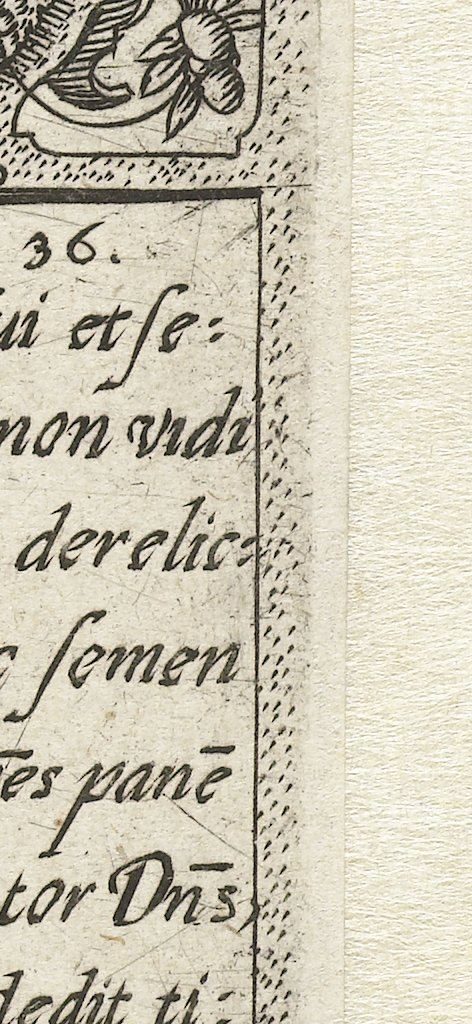 36.
ui et ſe:
non vidi
derelic:
ſemen
es panē
tor Dn̄s,
dedit ti: